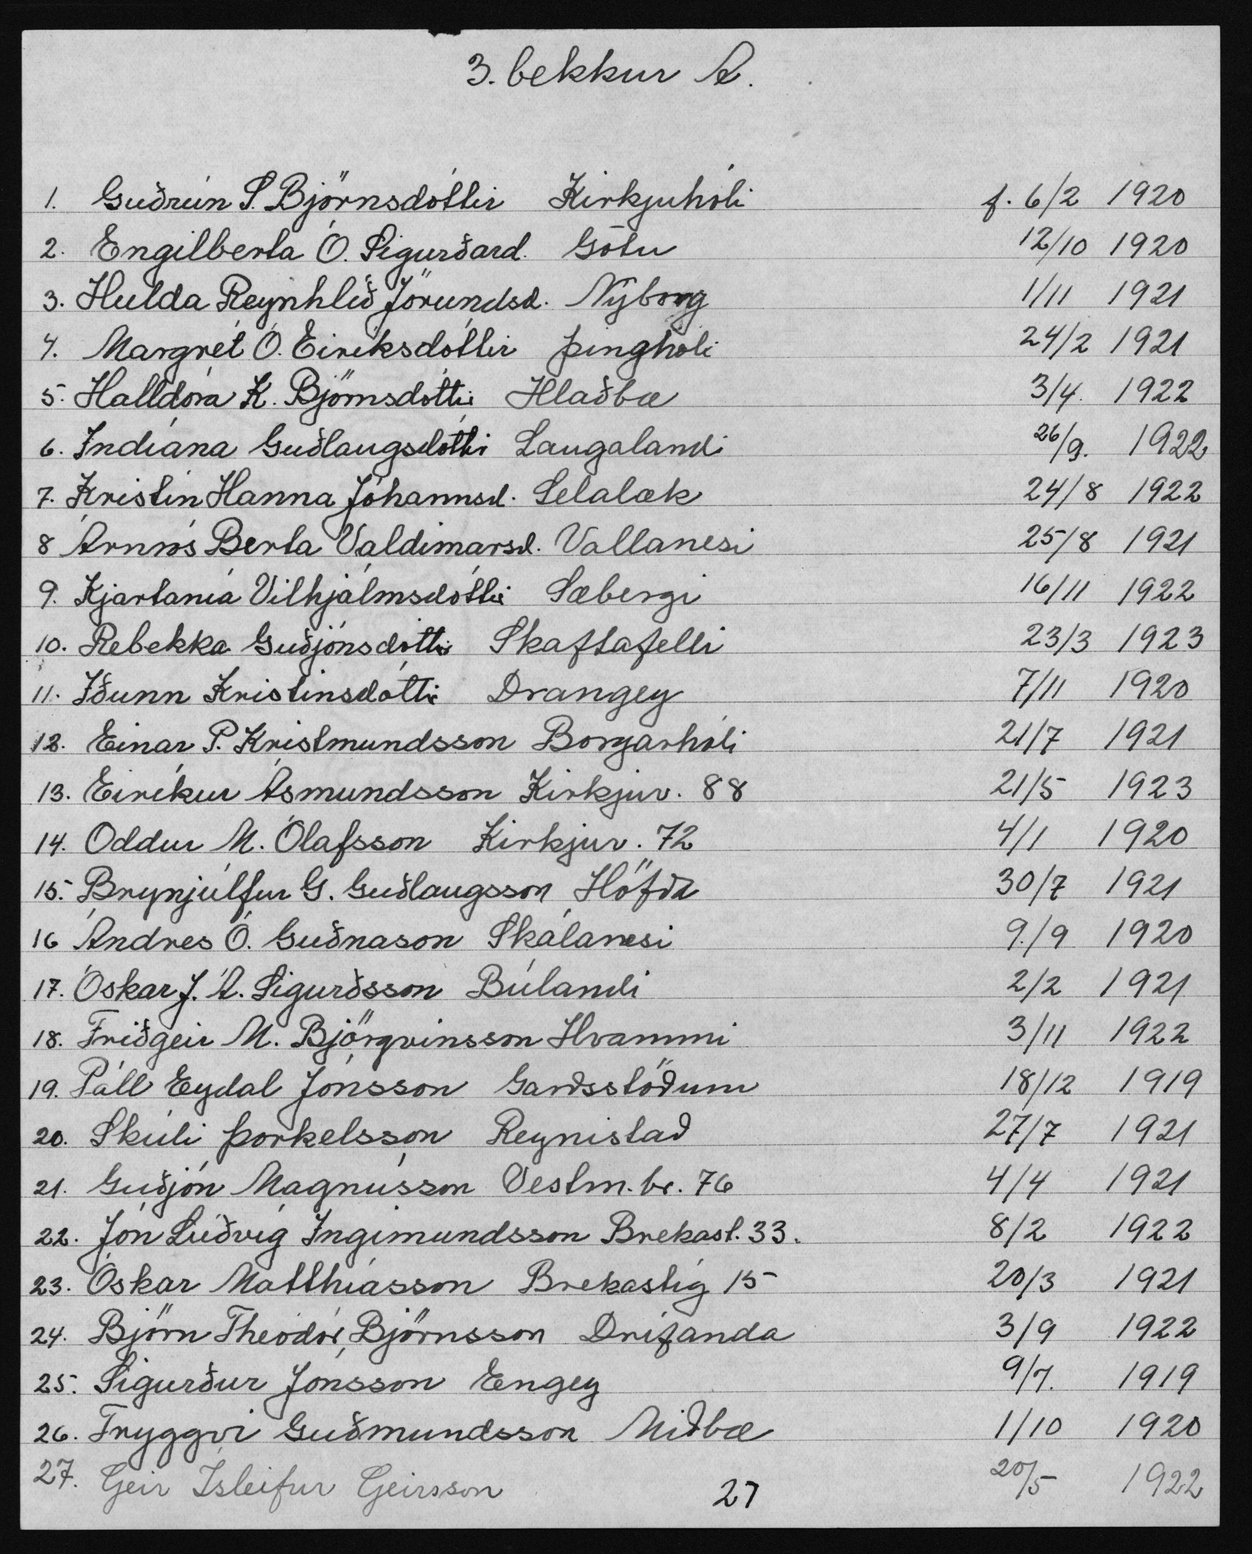 3. bekkur A.
1. Guðrún S. Björnsdóttir Kirkjuhóli f. 6/2 1920
2. Engilberta Ó. Sigurðard. Götu 12/10 1920
3. Hulda Reynhlíð Jörundsd. Nýborg 1/11 1921
4. Margrét Ó. Eiríksdóttir Þinghóli 24/2 1921
5. Halldóra K. Björnsdóttir Hlaðbæ 3/4. 1922
6. Indíana Guðlaugsdóttir Laugalandi 26/9. 1922
7. Kristín Hanna Jóhannsd. Selalæk 24/8 1922
8 Árnnós Berta Valdimarsd. Vallanesi 25/8 1921
9. Kjartanía Vilhjálmsdóttir Sæbergi 16/11 1922
10. Rebekka Guðjónsdóttir Skaftafelli 23/3 1923
11. Iðunn Kristinsdóttir Drangey 7/11 1920
12. Einar P. Kristmundsson Borgarhóli 21/7 1921
13. Eiríkur Ásmundsson Kirkjuv. 88 21/5 1923
14. Oddur M. Ólafsson Kirkjuv. 72 4/1 1920
15. Brynjúlfur G. Guðlaugsson Höfða 30/7 1921
16 Andres Ó. Guðnason Skálanesi 9/9 1920
17. Óskar J. Á. Sigurðsson Búlandi 2/2 1921
18. Friðgeir M. Björgvinsson Hvammi 3/11 1922
19. Páll Eydal Jónsson Garðsstöðum 18/12 1919
20. Skúli Þorkelsson Reynistað 27/7 1921
21. Guðjón Magnússon Vestm.br. 76 4/4 1921
22. Jón Lúðvíg Ingimundsson Brekast. 33. 8/2 1922
23. Óskar Matthíasson Brekastíg 15 20/3 1921
24. Björn Theodór Björnsson Drífanda 3/9 1922
25. Sigurður Jónsson Engey 9/7. 1919
26. Tryggvi Guðmundsson Miðbæ 1/10 1920
27. Geir Ísleifur Geirsson 20/5 1922
27